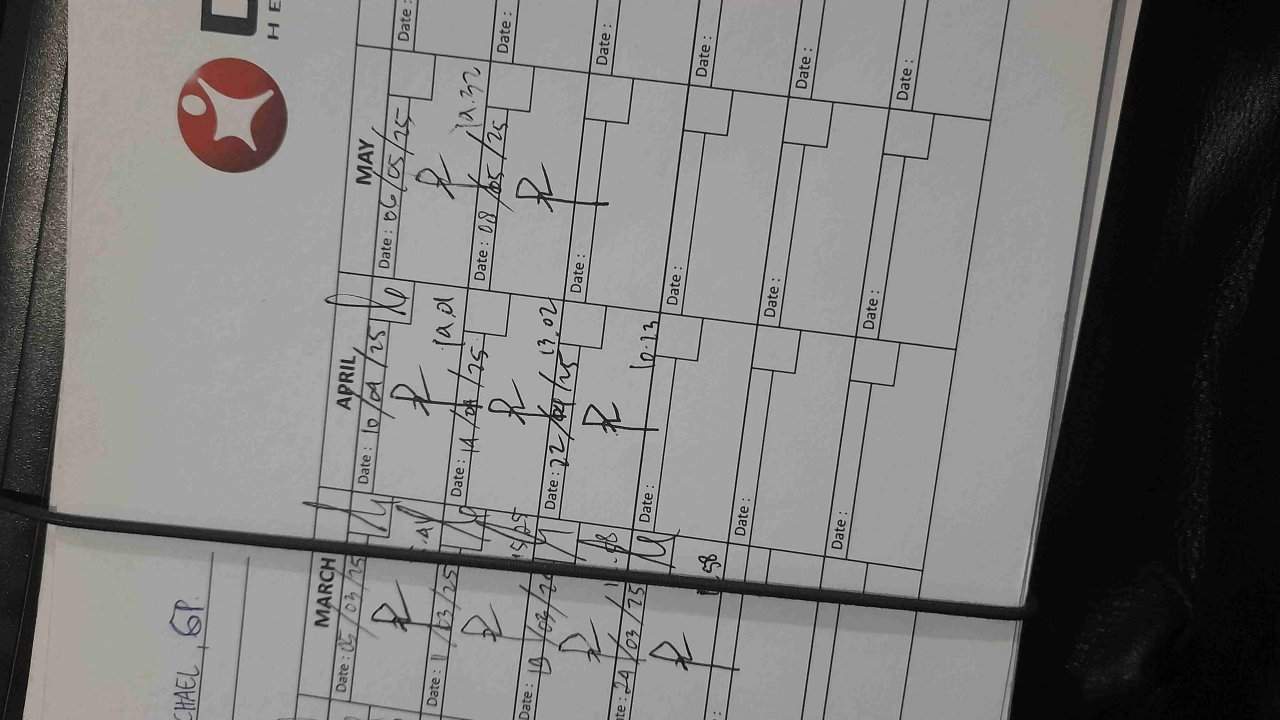 CHAEL, GP.
MARCH
Date: 05/03/25
Date: 11/03/25
Date:
Date: 24/03/25
.58
APRIL
Date: 10/04/25
Date: 14/04/25
13.02
Date: 22/04/25
10.13
Date:
Date:
Date:
MAY
Date: 06/05/25
12.32
Date: 08/05/25
Date:
Date:
Date:
Date:
Date:
Date:
Date:
Date:
Date:
Date:
HE